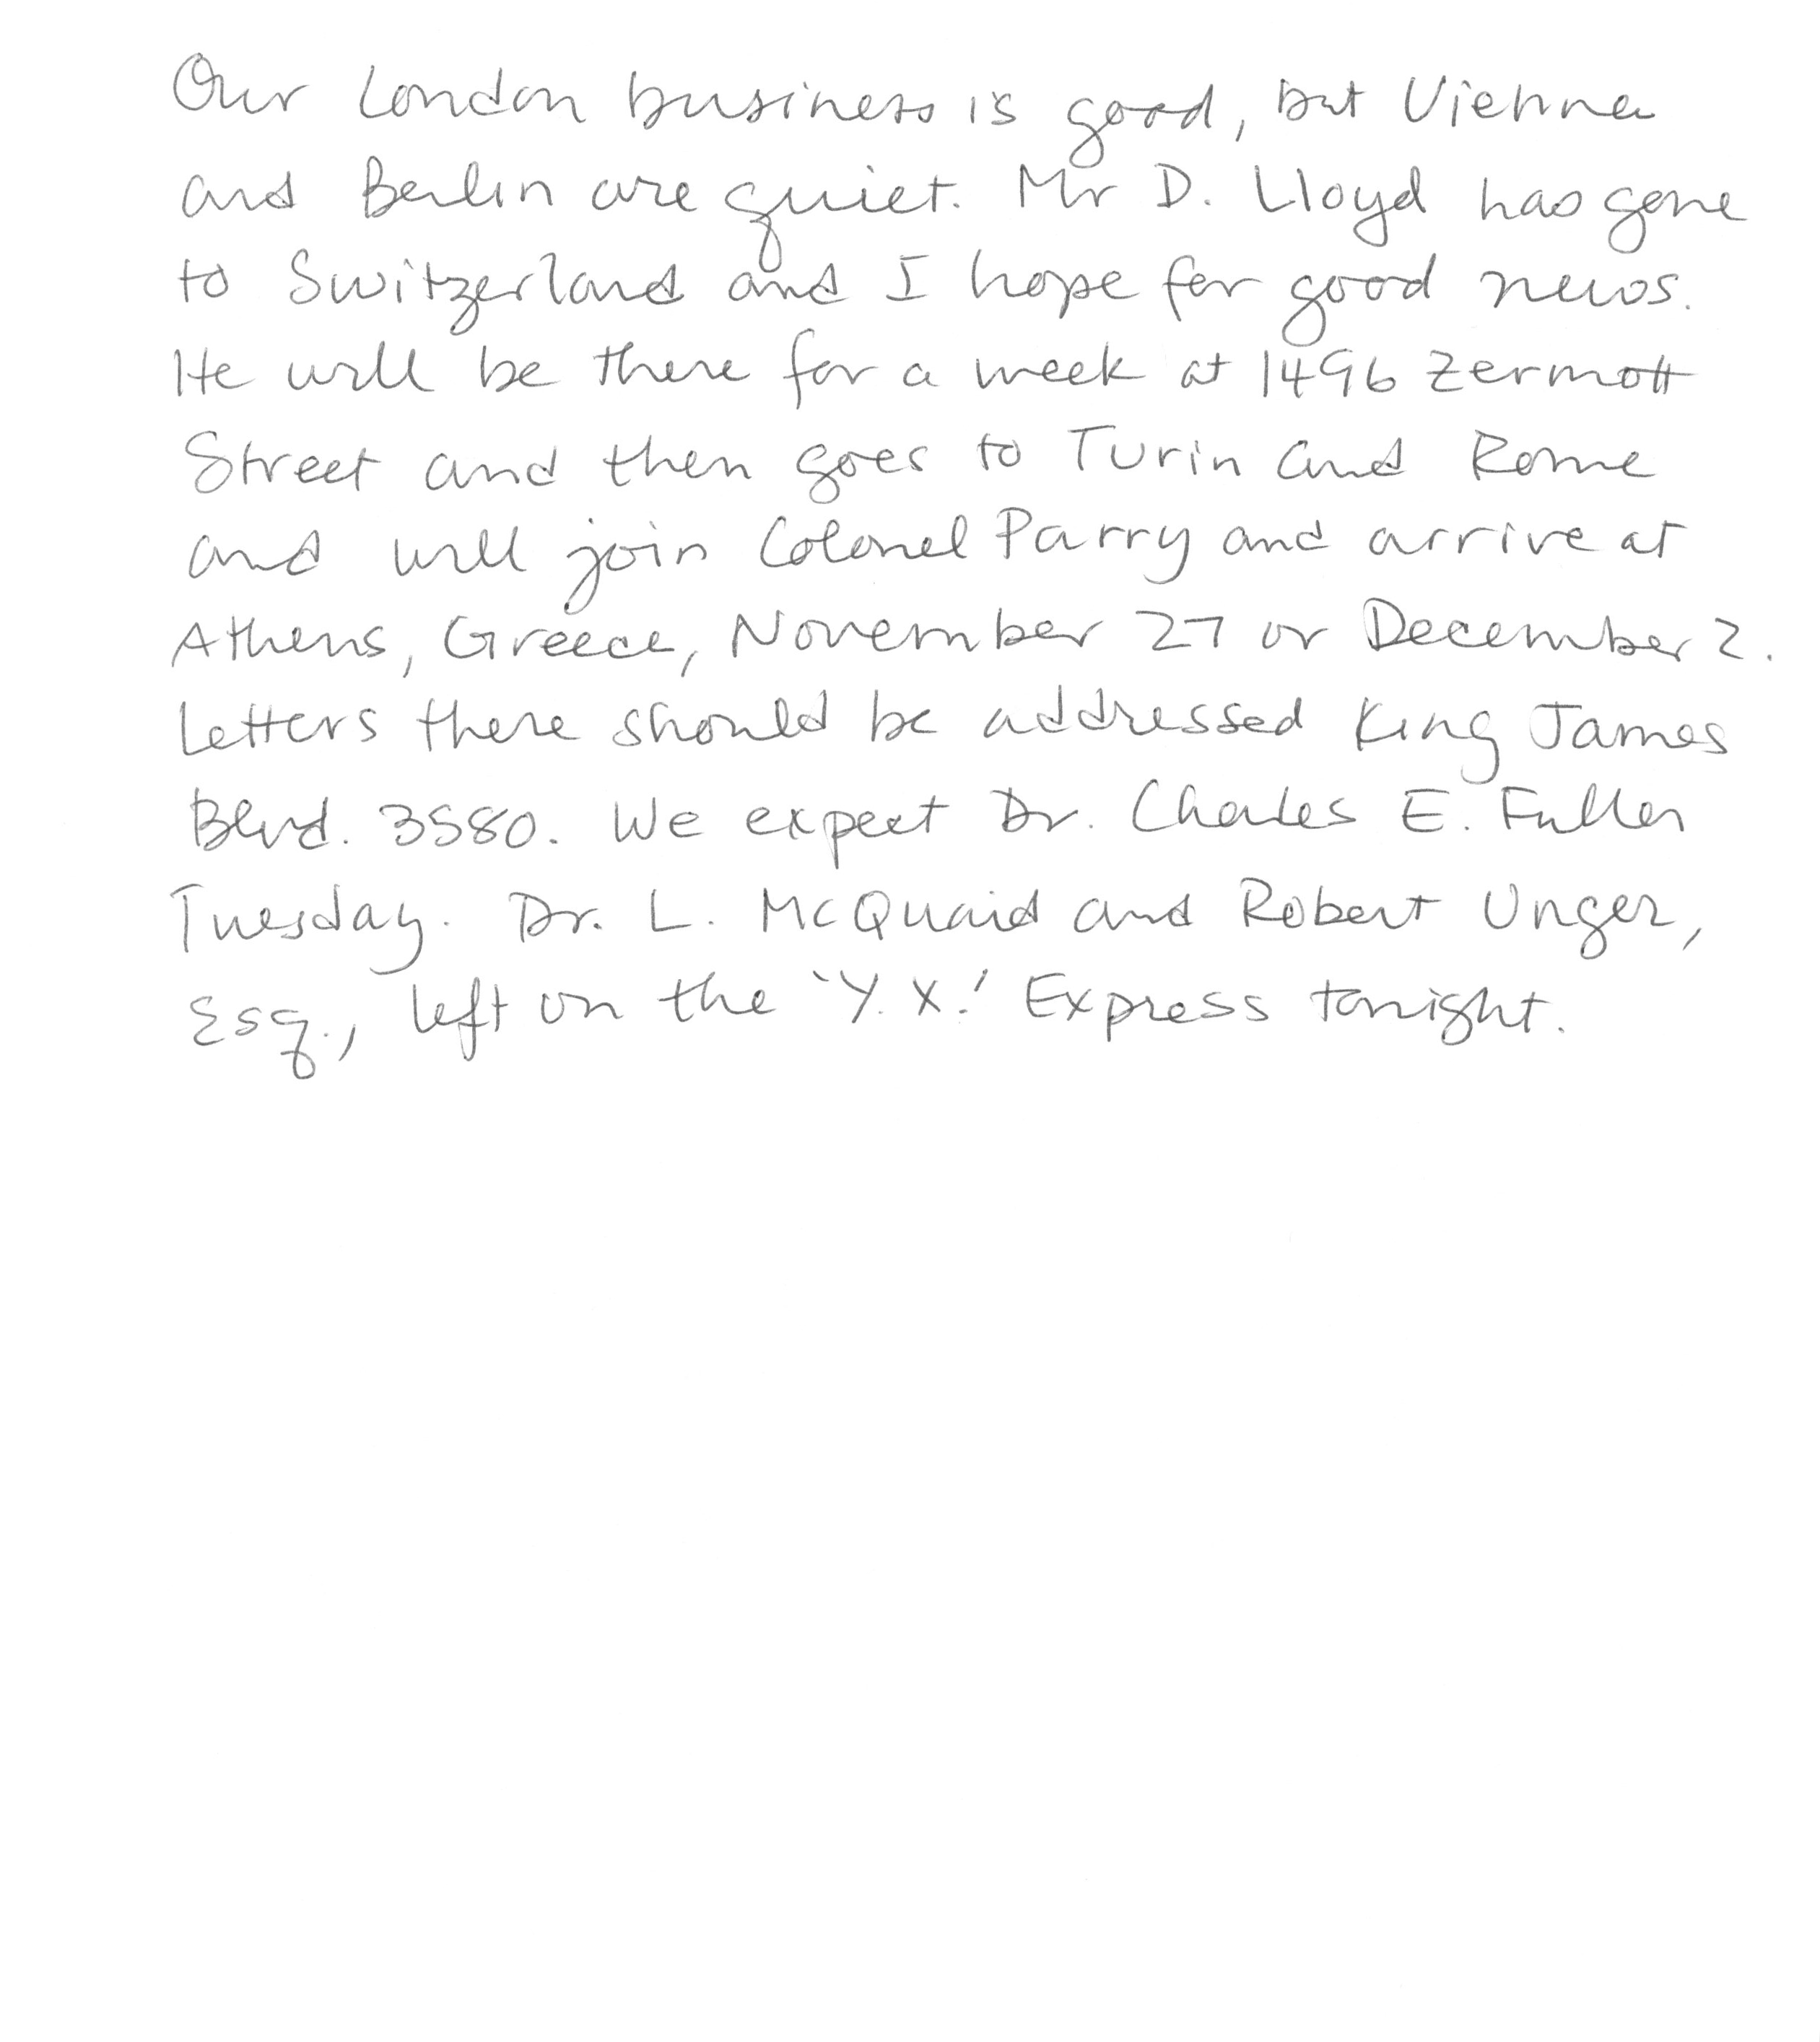 Our London business is good, but Vienna
and Berlin are quiet. Mr D. Lloyd has gone
to Switzerland and I hope for good news.
He will be there for a week at 1496 Zermott
Street and then goes to Turin and Rome
and will join Colonel Parry and arrive at
Athens, Greece, November 27 or December 2.
Letters there should be addressed King James
Blvd. 3580. We expect Dr. Charles E. Fuller
Tuesday. Dr. L. McQuaid and Robert Unger,
Esq., left on the 'Y.X.' Express tonight.